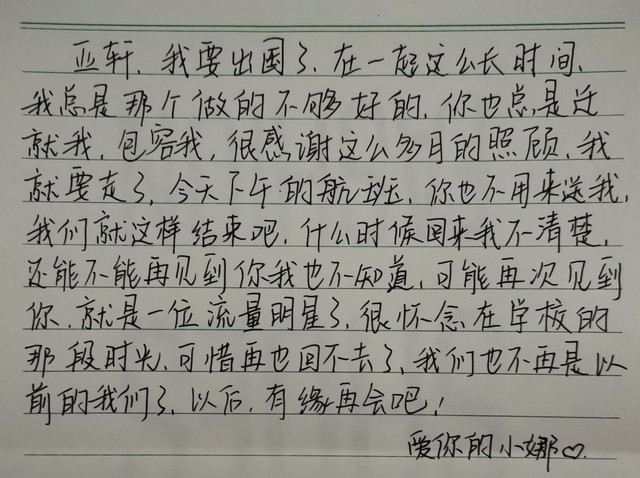 亚轩,我要出国了,在一起这么长时间,
我总是那个做的不够好的,你也总是迁
就我,包容我,很感谢这么多月的照顾,我
就要走了,今天下午的航班,你也不用来送我,
我们就这样结束吧,什么时候回来我不清楚,
还能不能再见到你我也不知道,可能再次见到
你,就是一位流量明星了,很怀念在学校的
那段时光,可惜再也回不去了,我们也不再是以
前的我们了,以后,有缘再会吧!
爱你的小娜♡